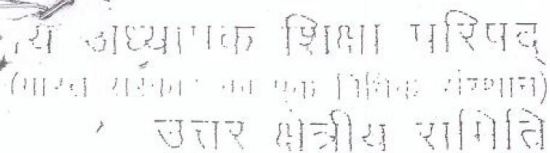 अध्यापक शिक्षा परिषद्
(भारत सरकार का एक विधिक संस्थान)
उत्तर क्षेत्रीय समिति